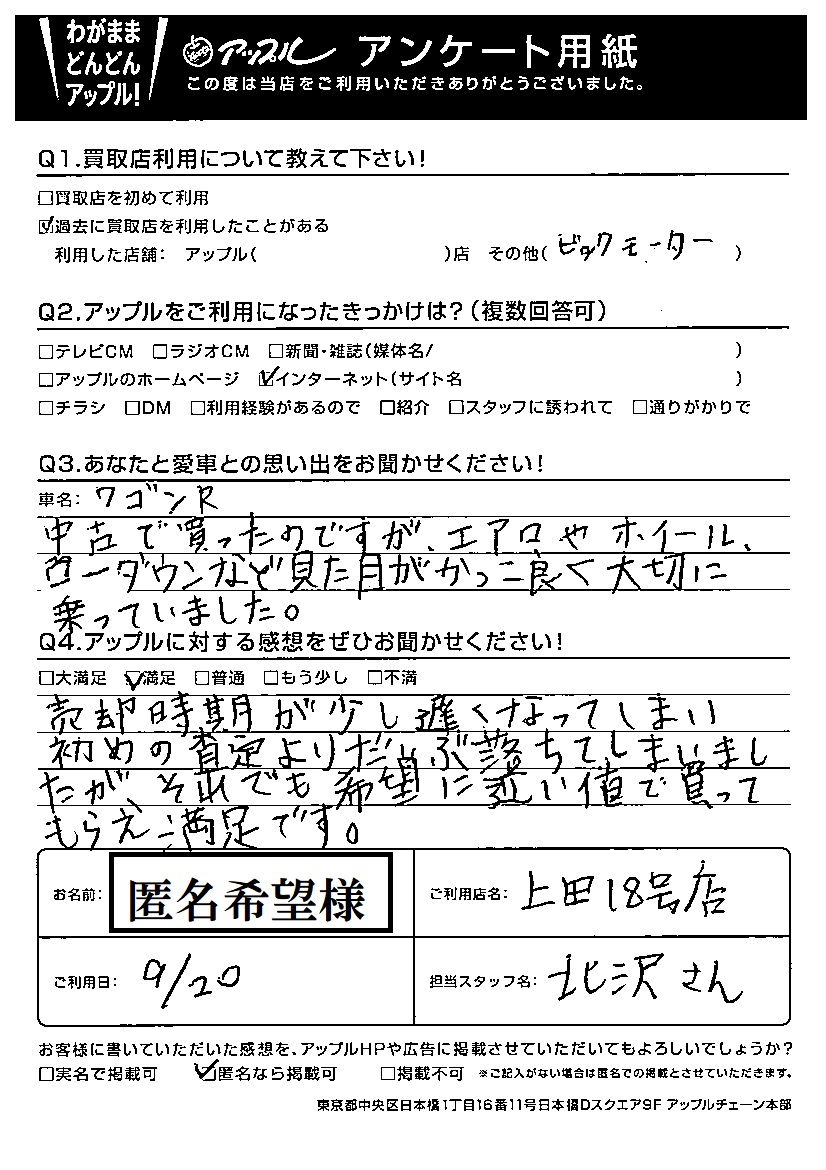 わがまま
どんどん
アップル!
アップル アンケート用紙
この度は当店をご利用いただきありがとうございました。
Q1.買取店利用について教えて下さい!
□買取店を初めて利用
☑過去に買取店を利用したことがある
利用した店舗： アップル( )店 その他( ビックモーター )
Q2.アップルをご利用になったきっかけは?(複数回答可)
□テレビCM □ラジオCM □新聞・雑誌(媒体名/ )
□アップルのホームページ ☑インターネット(サイト名 )
□チラシ □DM □利用経験があるので □紹介 □スタッフに誘われて □通りがかりで
Q3.あなたと愛車との思い出をお聞かせください!
車名： ワゴンR
中古で買ったのですが、エアロや ホイール、
ローダウンなど見た目がかっこ良く大切に
乗っていました。
Q4.アップルに対する感想をぜひお聞かせください!
□大満足 ☑満足 □普通 □もう少し □不満
売却時期が少し遅くなってしまい
初めの査定よりだいぶ落ちてしまいまし
たが、それでも希望に近い値で買って
もらえ満足です。
お名前： 匿名希望様
ご利用店名： 上田18号店
ご利用日： 9/20
担当スタッフ名： 北沢さん
お客様に書いていただいた感想を、アップルHPや広告に掲載させていただいてもよろしいでしょうか?
□実名で掲載可 ☑匿名なら掲載可 □掲載不可 ※ご記入がない場合は匿名での掲載とさせていただきます。
東京都中央区日本橋1丁目16番11号日本橋Dスクエア9F アップルチェーン本部